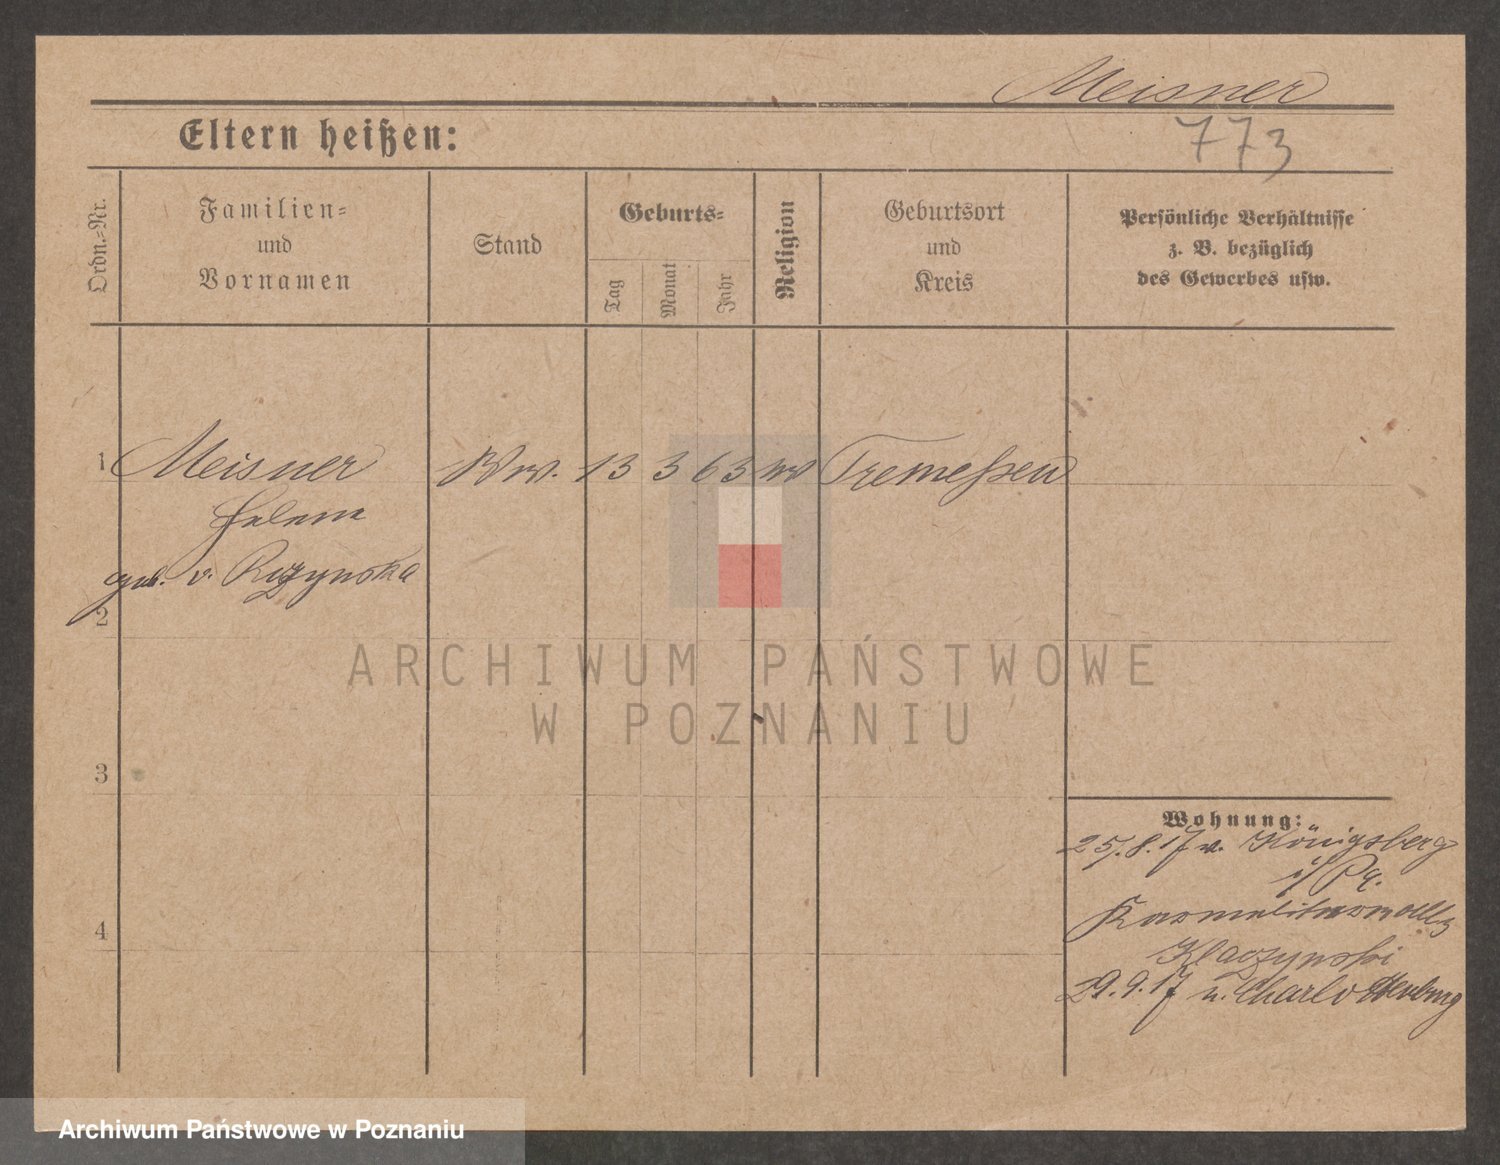 Meisner
Eltern heißen:
773
Ordn.=Nr.
Familien=
und
Vornamen
Stand
Geburts=
Tag
Monat
Jahr
Religion
Geburtsort
und
Kreis
Persönliche Verhältnisse
z. B. bezüglich
des Gewerbes usw.
1 Meisner Ww. 13 3 63 Tremeßen
Helene
geb. v.
2
ARCHIWUM PAŃSTWOWE
W POZNANIU
3
Wohnung:
25.8.17 v. Königsberg
i/Pr.
4
29.9.17 n. Charlottenburg
Archiwum Państwowe w Poznaniu